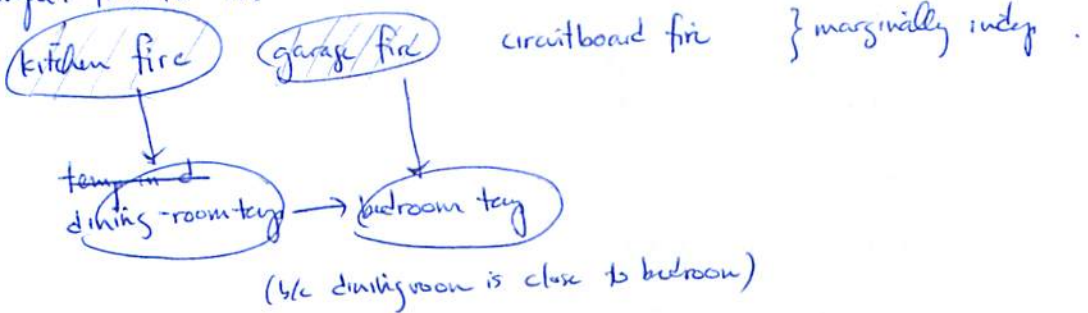 kitchen fire garage fire circuitboard fire } marginally indep.
temp in d
dining-room temp → bedroom temp
(b/c dining room is close to bedroom)